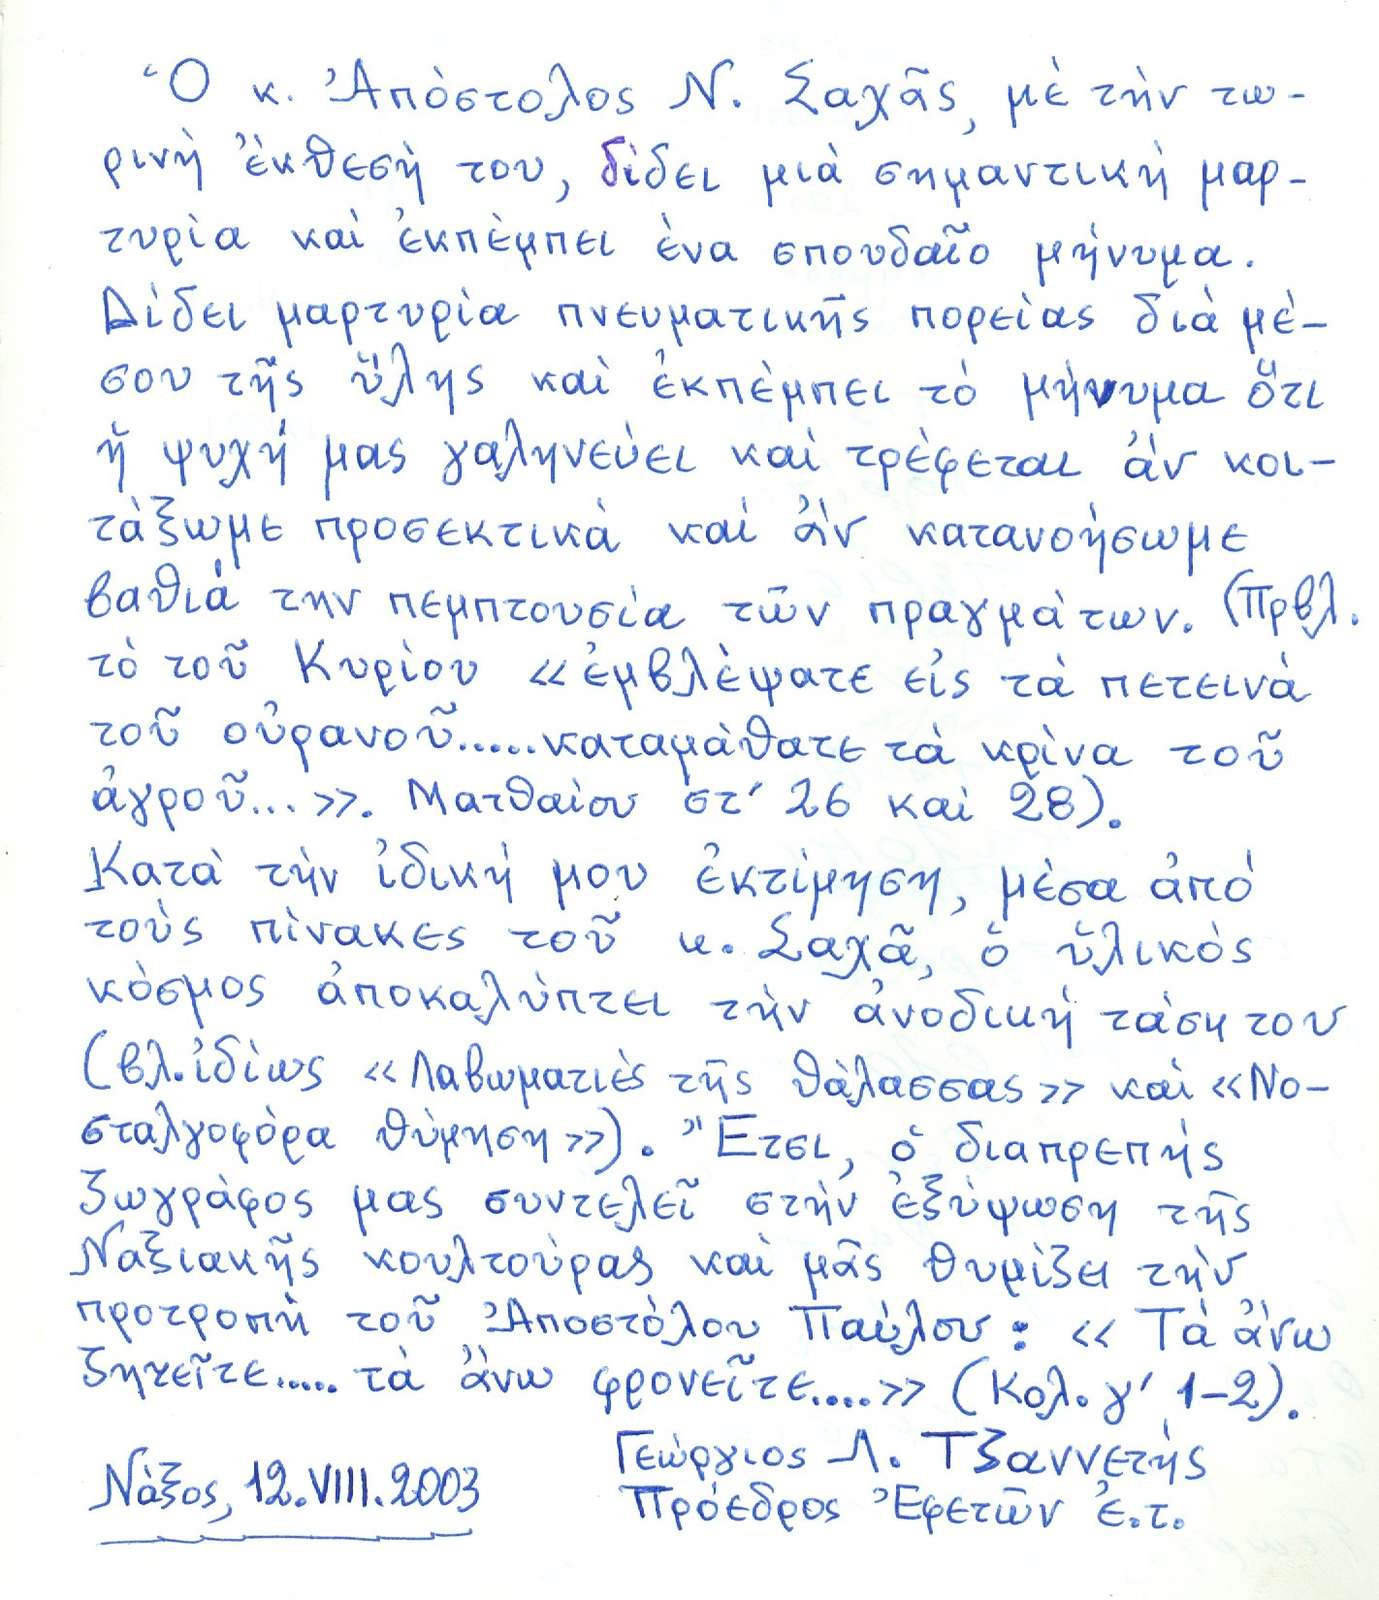 Ὁ κ. Ἀπόστολος Ν. Σαχᾶς, μὲ τὴν τω-
ρινὴ ἔκθεσή του, δίδει μιὰ σημαντικὴ μαρ-
τυρία καὶ ἐκπέμπει ἕνα σπουδαῖο μήνυμα.
Δίδει μαρτυρία πνευματικῆς πορείας διὰ μέ-
σου τῆς ὕλης καὶ ἐκπέμπει τὸ μήνυμα ὅτι
ἡ ψυχή μας γαληνεύει καὶ τρέφεται ἂν κοι-
τάξωμε προσεκτικὰ καὶ ἂν κατανοήσωμε
βαθιὰ την πεμπτουσία τῶν πραγμάτων. (Πρβλ.
τὸ τοῦ Κυρίου «ἐμβλέψατε εἰς τὰ πετεινὰ
τοῦ οὐρανοῦ.....καταμάθατε τὰ κρίνα τοῦ
ἀγροῦ...». Ματθαίου στ' 26 καὶ 28).
Κατὰ τὴν ἰδική μου ἐκτίμηση, μέσα ἀπὸ
τοὺς πίνακες τοῦ κ. Σαχᾶ, ὁ ὑλικὸς
κόσμος ἀποκαλύπτει τὴν ἀνοδική τάση του
(βλ. ἰδίως «Λαβωματιὲς τῆς θάλασσας» καὶ «Νο-
σταλγοφόρα θύμηση»). Ἔτσι, ὁ διαπρεπὴς
ζωγράφος μας συντελεῖ στὴν ἐξύψωση τῆς
Ναξιακῆς κουλτούρας καὶ μᾶς θυμίζει τὴν
προτροπὴ τοῦ Ἀποστόλου Παύλου: «Τὰ ἄνω
ζητεῖτε..... τὰ ἄνω φρονεῖτε....» (Κολ. γ' 1-2).
Γεώργιος Λ. Τζαννετής
Νάξος, 12.VIII.2003
Πρόεδρος Ἐφετῶν ἐ.τ.